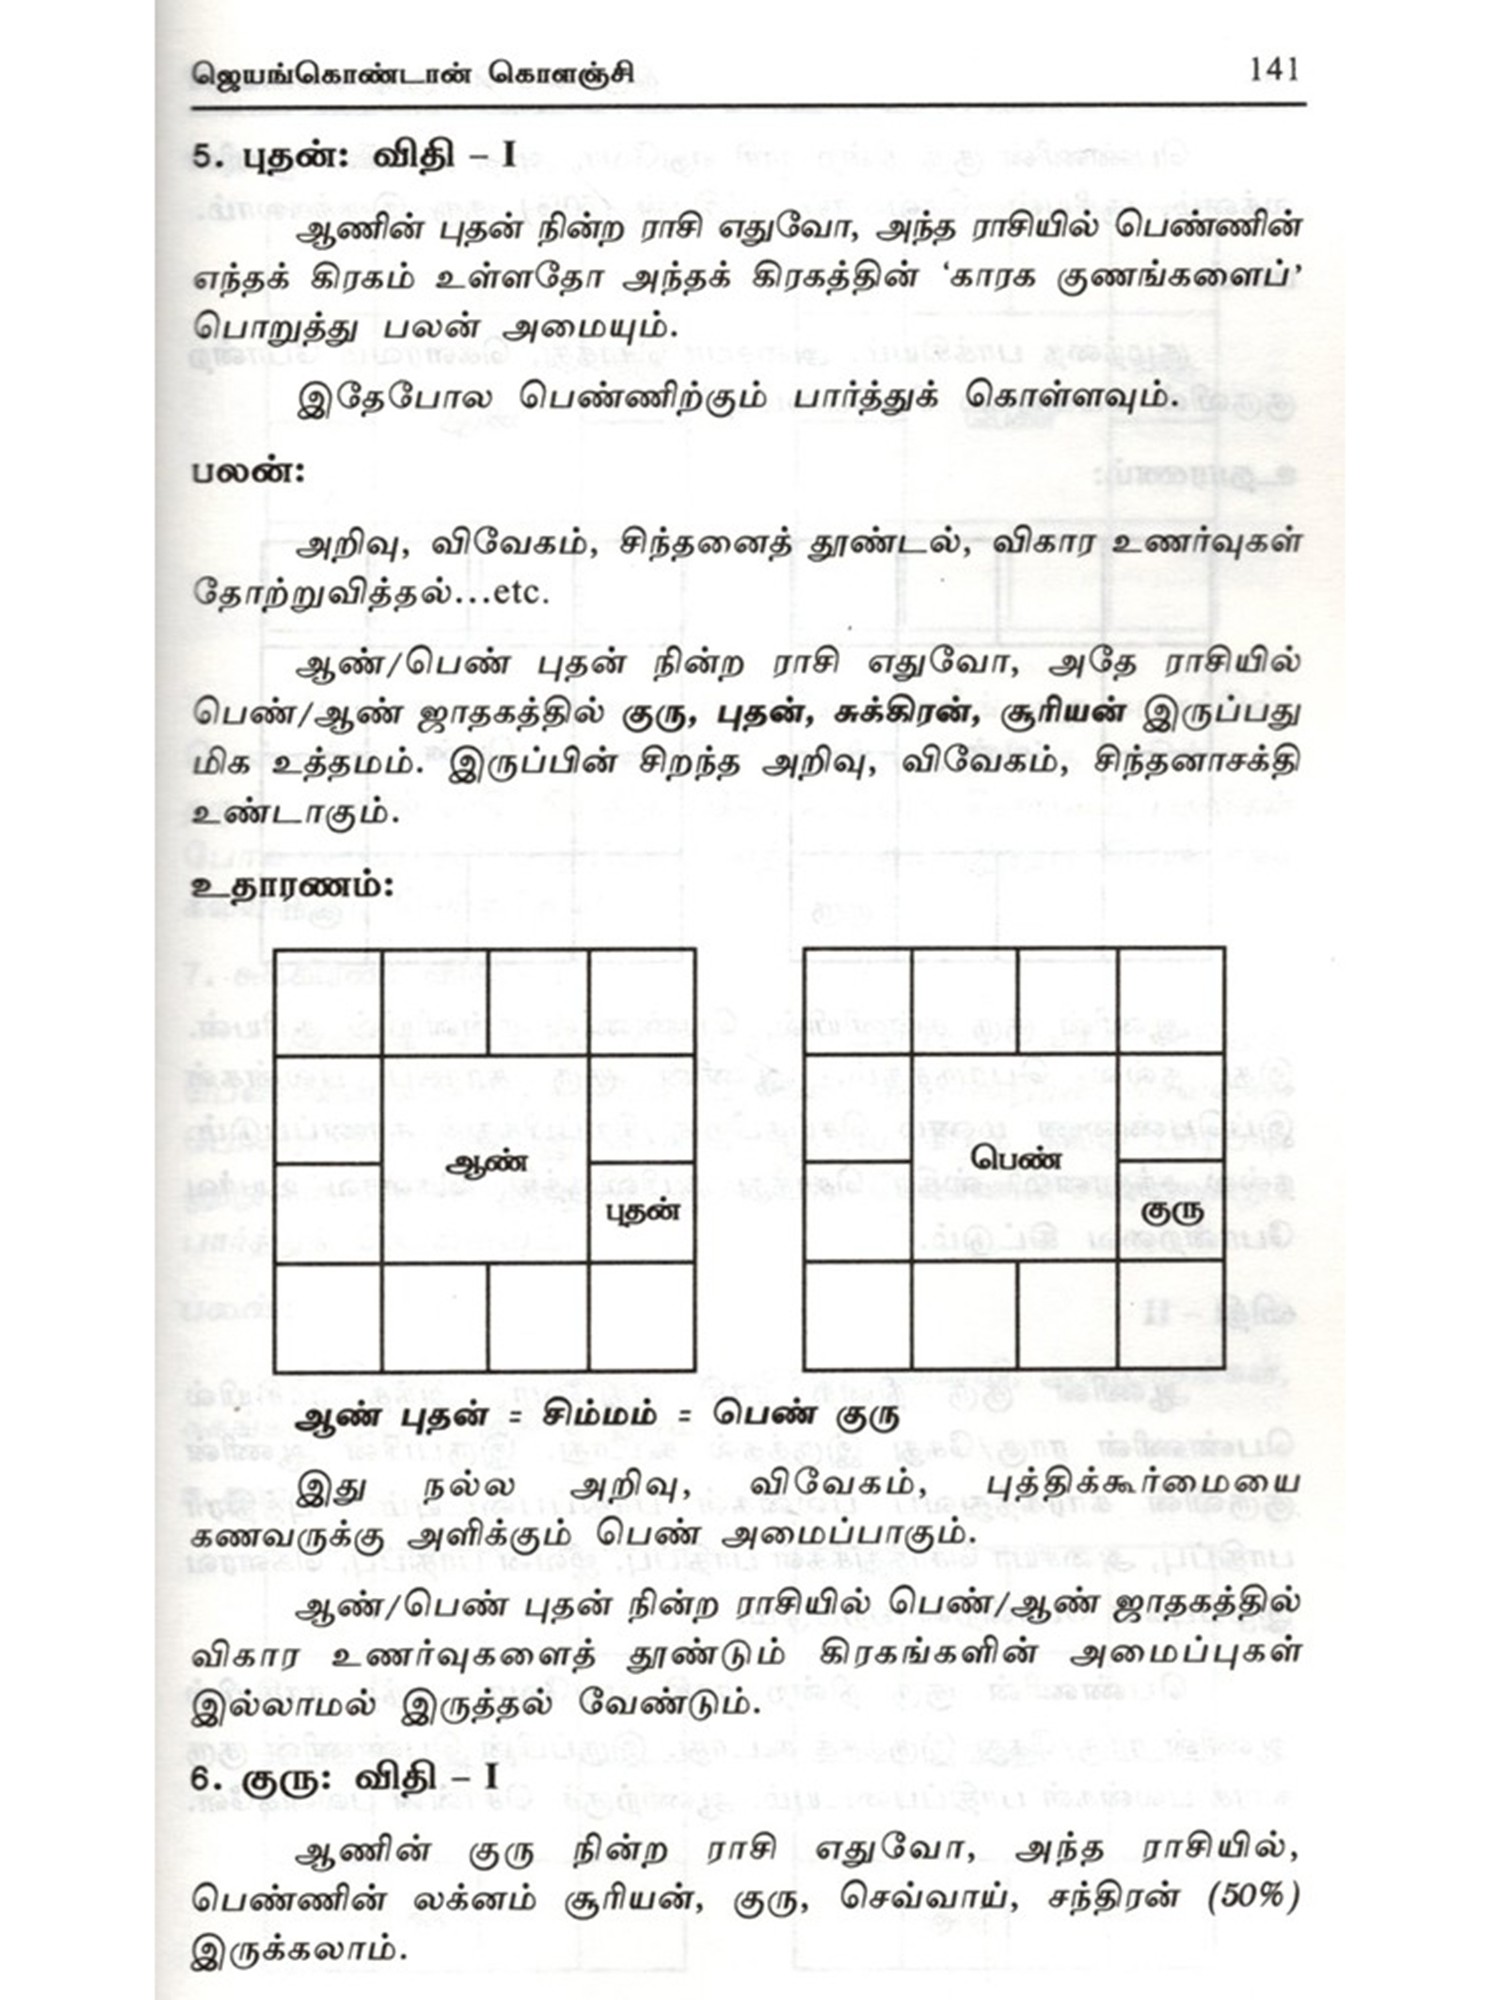 ஜெயங்கொண்டான் கொளஞ்சி 141
5. புதன்: விதி – I
ஆணின் புதன் நின்ற ராசி எதுவோ, அந்த ராசியில் பெண்ணின்
எந்தக் கிரகம் உள்ளதோ அந்தக் கிரகத்தின் ‘காரக குணங்களைப்’
பொறுத்து பலன் அமையும்.
இதேபோல பெண்ணிற்கும் பார்த்துக் கொள்ளவும்.
பலன்:
அறிவு, விவேகம், சிந்தனைத் தூண்டல், விகார உணர்வுகள்
தோற்றுவித்தல்...etc.
ஆண்/பெண் புதன் நின்ற ராசி எதுவோ, அதே ராசியில்
பெண்/ஆண் ஜாதகத்தில் குரு, புதன், சுக்கிரன், சூரியன் இருப்பது
மிக உத்தமம். இருப்பின் சிறந்த அறிவு, விவேகம், சிந்தனாசக்தி
உண்டாகும்.
உதாரணம்:
ஆண்
புதன்
பெண்
குரு
ஆண் புதன் = சிம்மம் = பெண் குரு
இது நல்ல அறிவு, விவேகம், புத்திக்கூர்மையை
கணவருக்கு அளிக்கும் பெண் அமைப்பாகும்.
ஆண்/பெண் புதன் நின்ற ராசியில் பெண்/ஆண் ஜாதகத்தில்
விகார உணர்வுகளைத் தூண்டும் கிரகங்களின் அமைப்புகள்
இல்லாமல் இருத்தல் வேண்டும்.
6. குரு: விதி – I
ஆணின் குரு நின்ற ராசி எதுவோ, அந்த ராசியில்,
பெண்ணின் லக்னம் சூரியன், குரு, செவ்வாய், சந்திரன் (50%)
இருக்கலாம்.